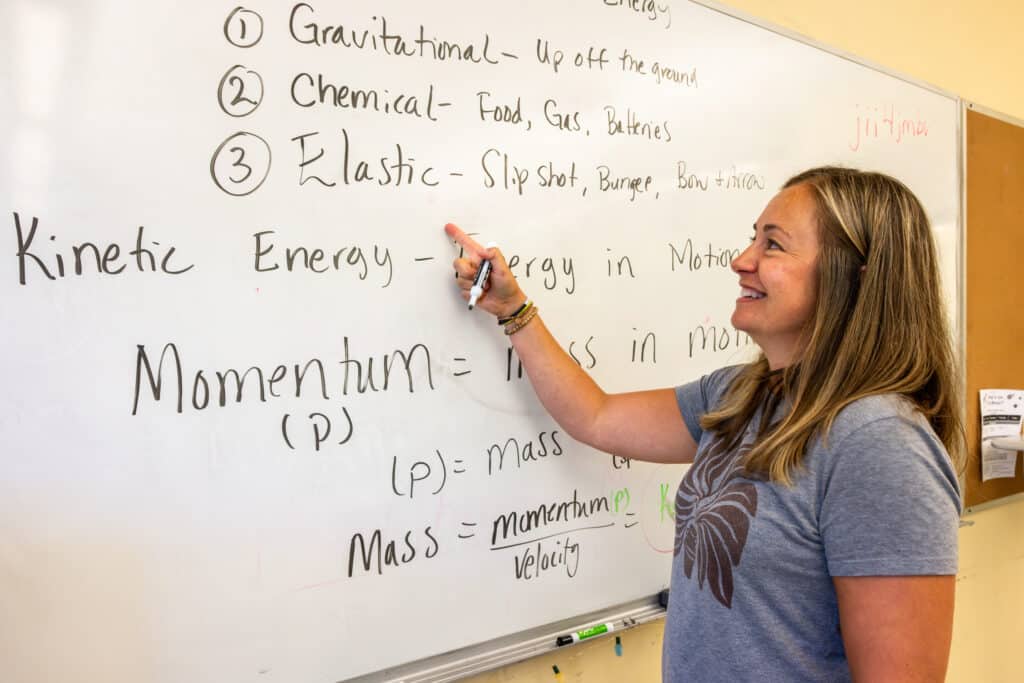 Energy
① Gravitational – Up off the ground
② Chemical – Food, Gas, Batteries
③ Elastic – Slip shot, Bungee, Bow + Arrow
Kinetic Energy – Energy in Motion
Momentum = mass in
(p)
(p) = mass
Mass = momentum (p) =
velocity